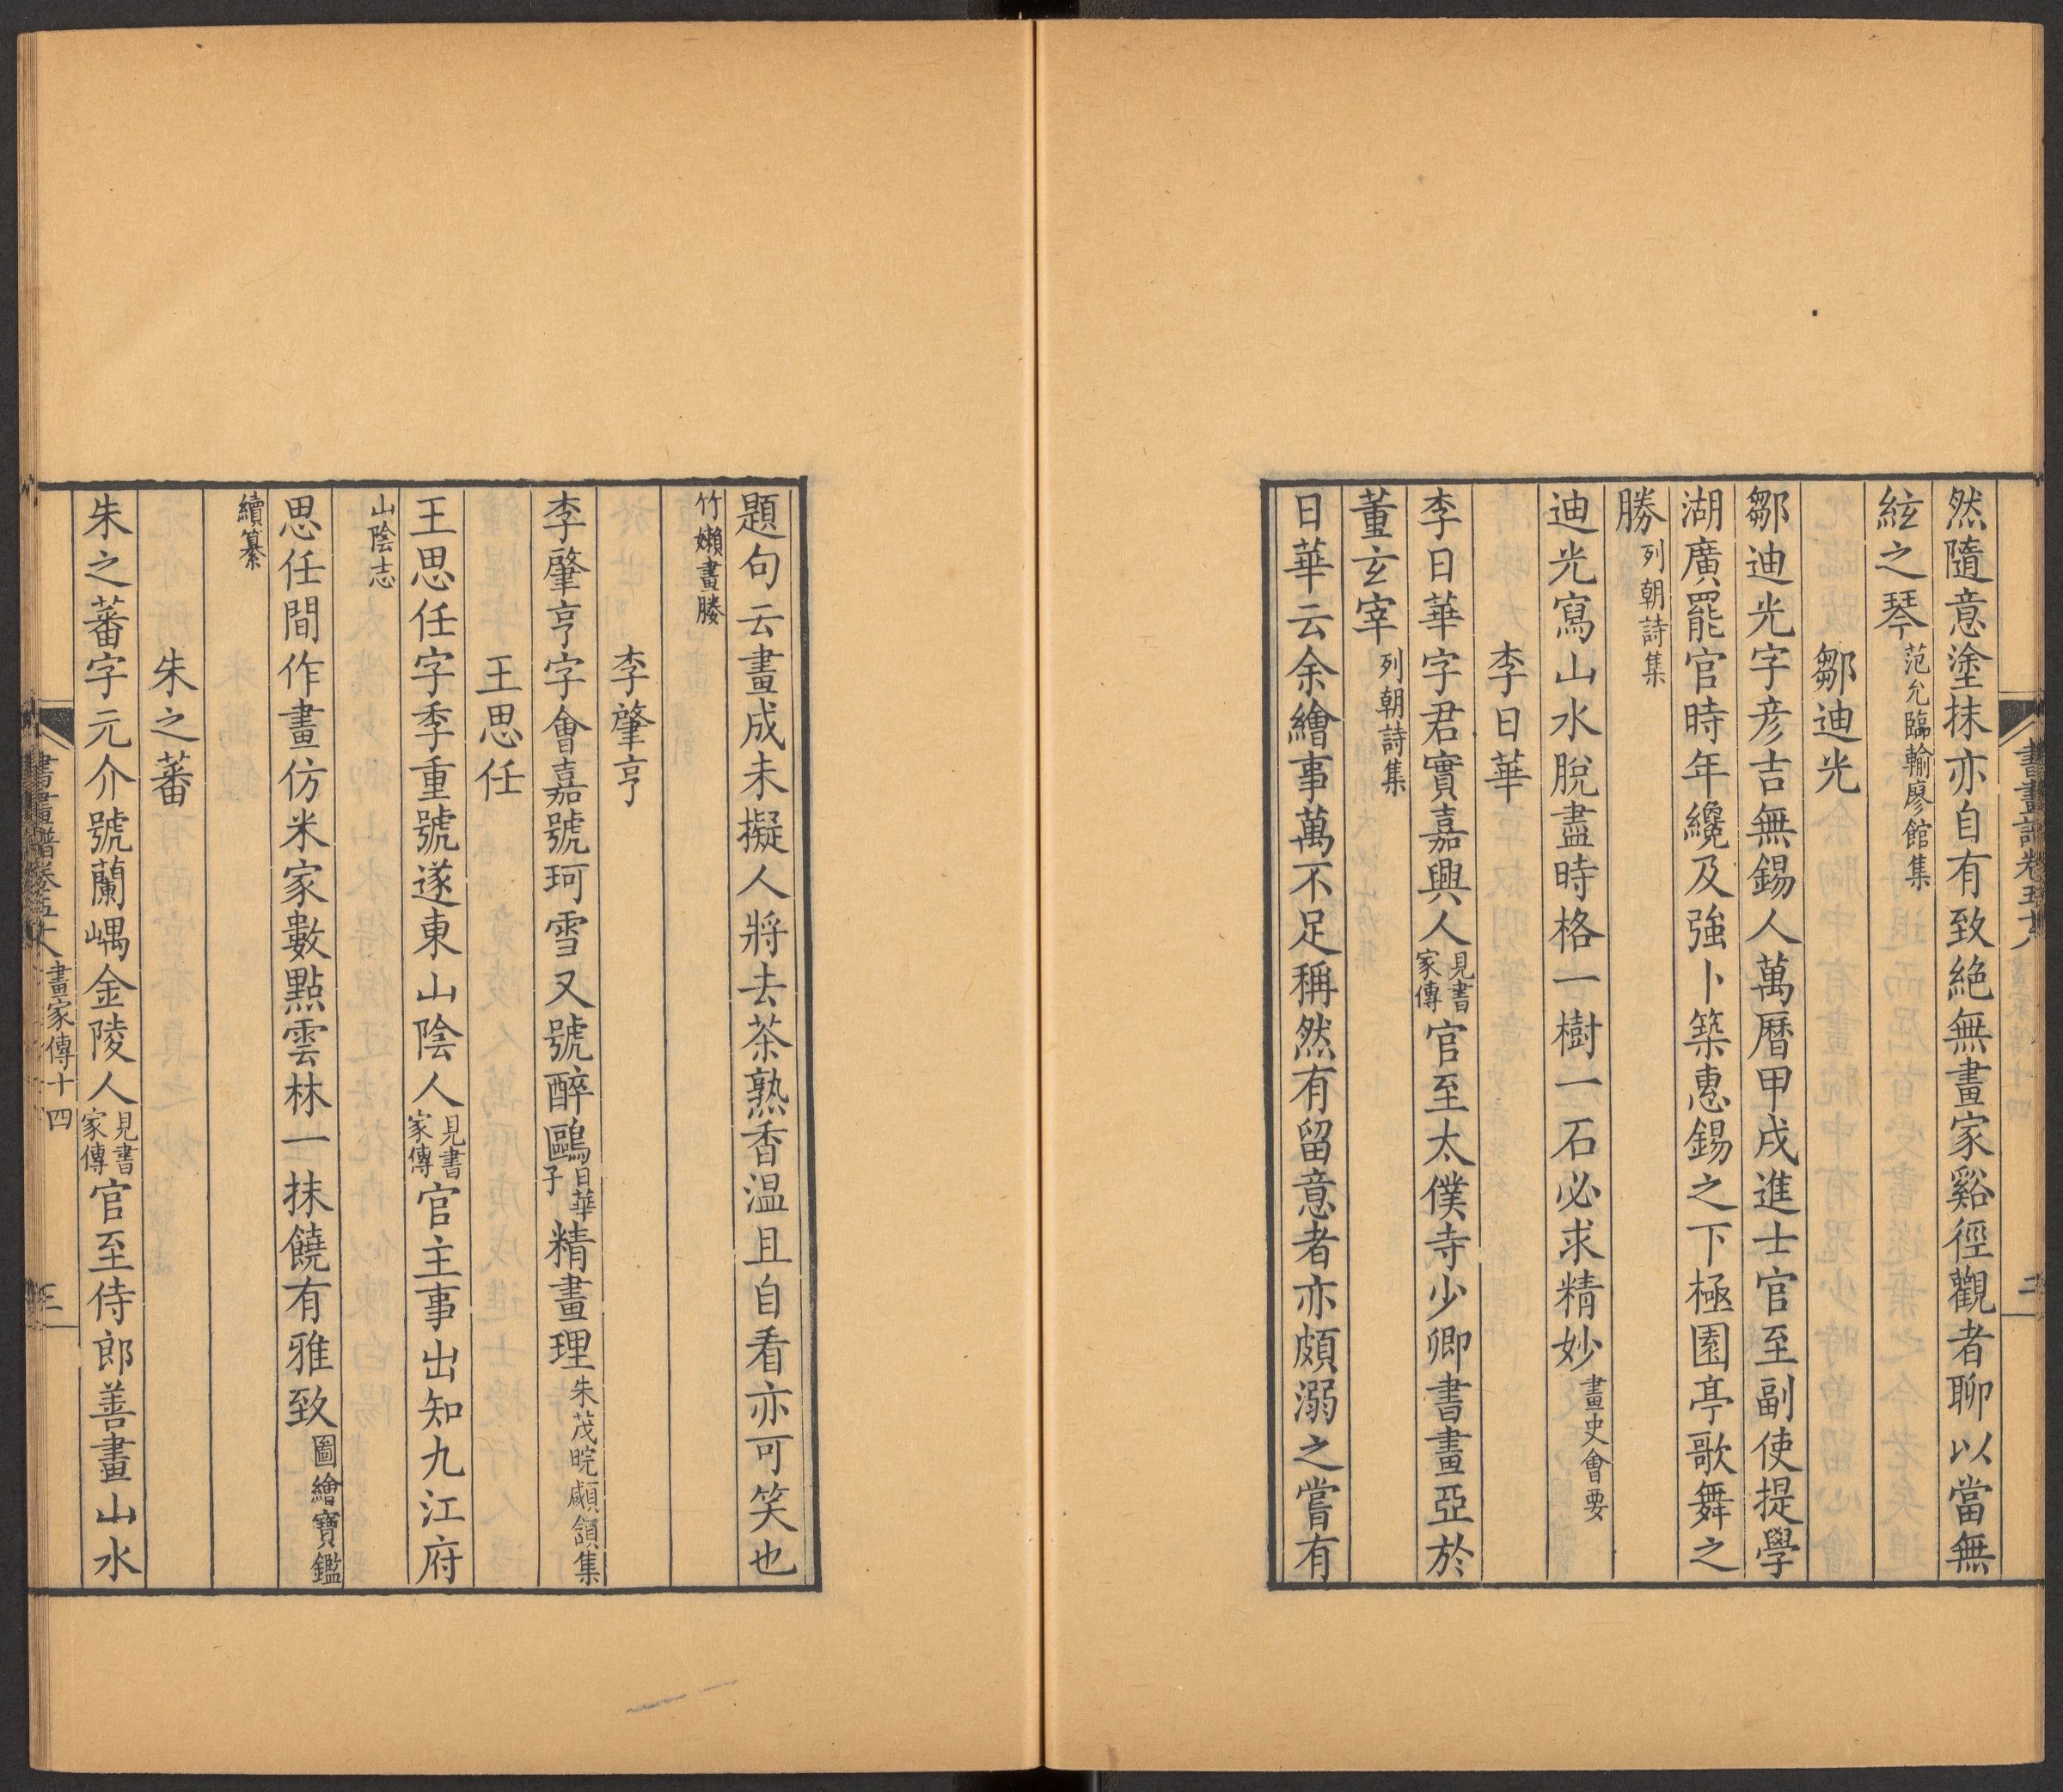 然隨意塗抹亦自有致絕無畫家谿徑觀者聊以當無
絃之琴范允臨輸廖館集
鄒迪光
鄒迪光字彦吉無錫人萬曆甲戌進士官至副使提學
湖廣罷官時年纔及強卜築惠錫之下極園亭歌舞之
勝列朝詩集
迪光寫山水脫盡時格一樹一石必求精妙畫史會要
李日華
李日華字君實嘉興人見書家傳官至太僕寺少卿書畫亞於
董玄宰列朝詩集
日華云余繪事萬不足稱然有留意者亦頗溺之嘗有
題句云畫成未擬人將去茶熟香溫且自看亦可笑也
竹嬾畫媵
李肇亨
李肇亨字會嘉號珂雪又號醉鷗日華子精畫理朱茂晥顑頷集
王思任
王思任字季重號遂東山陰人見書家傳官主事出知九江府
山陰志
思任間作畫仿米家數點雲林一抹饒有雅致圖繪寶鑑
續纂
朱之蕃
朱之蕃字元介號蘭嵎金陵人見書家傳官至侍郎善畫山水
書畫譜卷五十八 畫家傳十四 三